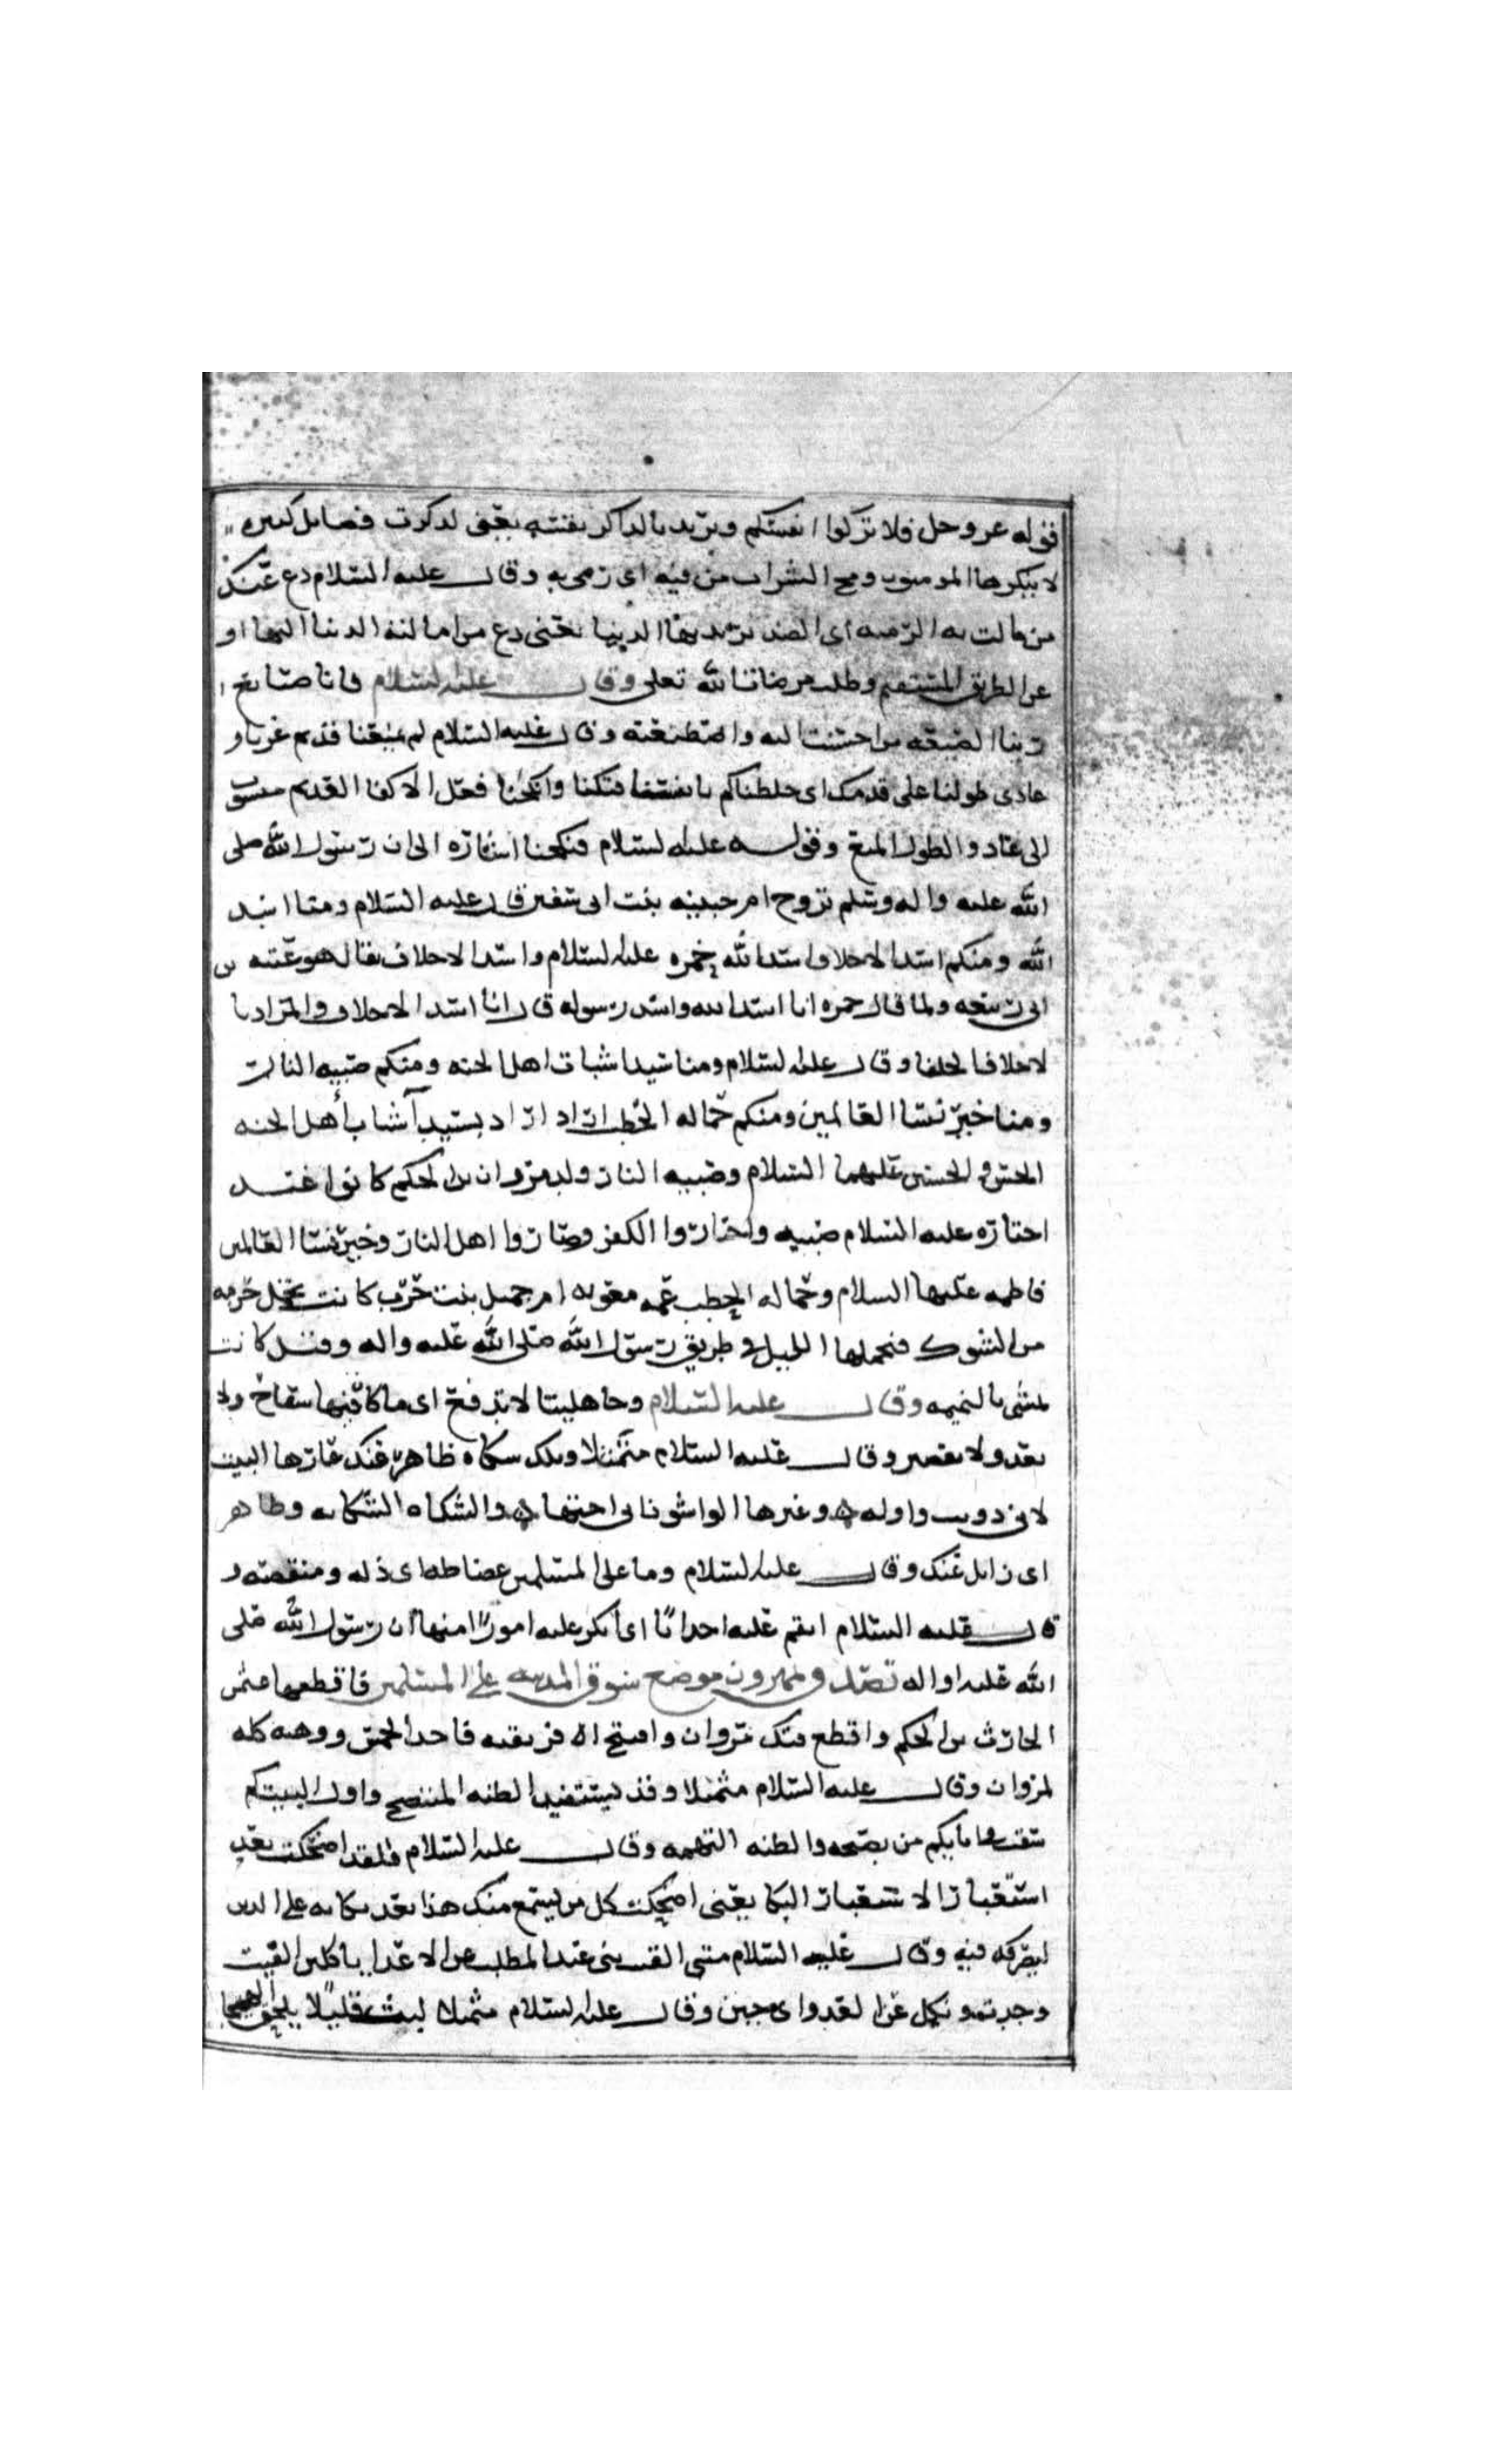 قوله عز وجل فلا تزكوا انفسكم ويريد بالذاكر نفسه يعني لذكرت فضايل كثيره
لا ينكرها المومنون ومج الشراب من فيه اى رمى به وقال عليه السلام دع عنك
من مالت به الرميه اى الصيد يريد بها الدنيا يعني دع من امالته الدنيا اليها او
عن الطريق المستقيم وطلب مرضات الله تعلى وقال عليه السلام فانا صنايع
ربنا الصنيعه من احسنت اليه واصطنعته وقال عليه السلام لم يمنعنا قديم عزنا و
عادى طولنا على قومك اى خلطناكم بانفسنا فنكحنا وانكحنا فعل الاكفا القديم منسوب
الى عاد والطول المنع وقوله عليه السلام فنكحنا اشاره الى ان رسول الله صلى
الله عليه واله وسلم تزوج ام حبيبه بنت ابى سفين قال عليه السلام ومنا اسد
الله ومنكم اسد الاحلاف اسد الله حمزه عليه السلام واسد الاحلاف يقال هو عتبه بن
ابى ربيعه ولما قال حمزه انا اسد الله واسد رسوله قال انا اسد الاحلاف والمراد با
لاحلاف الحلفا وقال عليه السلام ومنا سيدا شباب اهل الجنه ومنكم صبيه النار
ومنا خير نسا العالمين ومنكم حماله الحطب اراد اراد بسيدا شباب أهل الجنه
الحسن والحسين عليهما السلام وصبيه النار ولد مروان بن الحكم كانوا عند
اخباره عليه السلام صبيه واختاروا الكفر وصاروا اهل النار وخير نسا العالمين
فاطمه عليها السلام وحماله الحطب عمه معويه ام جميل بنت حرب كانت تحمل حزمه
من الشوك فتحملها الليل في طريق رسول الله صلى الله عليه واله وقيل كانت
تمشى بالنميمه وقال عليه السلام وجاهليتنا لا تدفع اى ما كان فيها سفاح ولا
بعد ولا نقصير وقال عليه السلام متمثلا وتلك شكاه ظاهر عنك عارها البيت
لابى ذويب واوله وعيرها الواشون انى احبها والشكاه الشكايه وظاهر
اى زايل عنك وقال عليه السلام وما على المسلمين غضاضه اى ذله ومنقصه و
قال عليه السلام انقم عليه احداثًا اى انكر عليه امورًا منها ان رسول الله صلى
الله عليه واله تصدق بمهزون موضع سوق المدينه على المسلمين فاقطعها عثمن
الحارث بن الحكم واقطع فدك مروان وافتتح افريقيه فاخذ الخمس ووهبه كله
لمروان وقال عليه السلام متمثلا وقد يستفيد الظنه المتنصح واول البيت كم
سقت في اثاركم من نصيحه والظنه التهمه وقال عليه السلام فلقد اضحكت بعد
استعبار الاستعبار البكا يعنى اضحكت كل من يسمع منك هذا بعد بكايه على الدين
لتصرفك فيه وقال عليه السلام متى الفيت بنى عبد المطلب عن الاعدا ناكلين الفيت
وجدت ونكل عن العدو اى جبن وقال عليه السلام متمثلا لبث قليلًا يلحق الهيجا